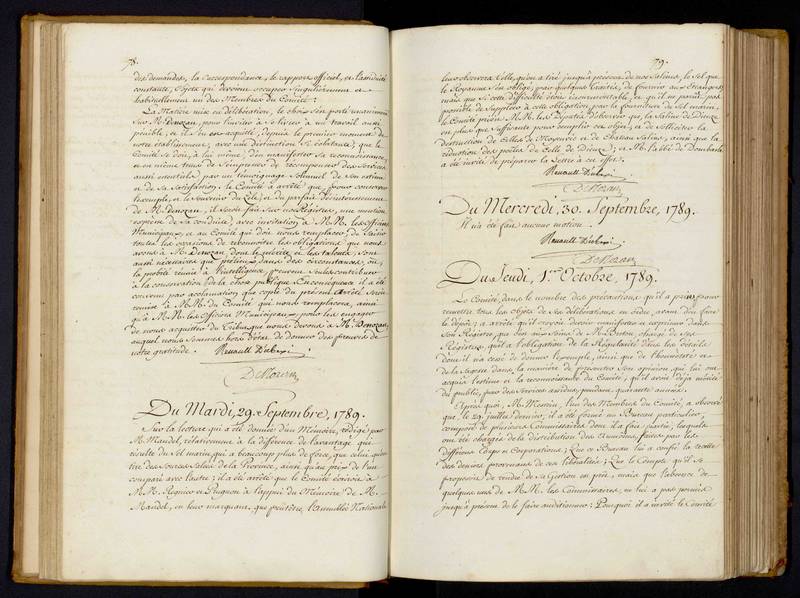 78.
des demandes, la Correspondance, le rapport officiel, et l'assiduité
constante, objets qui devront occuper singulièrement et
habituellement un des Membres du Comité;
La Matière mise en délibération, le choix s'en porté unanimement
Sur M. Denozan, pour l'inviter à se livrer à un travail aussi
pénible, et il s'en est acquitté, depuis le premier moment de
notre établissement, avec une distinction Si éclatante, que le
Comité se doit à lui même, d'en manifester sa reconnaissance,
et en même tems de s'empresser de récompenser des Services
aussi essentiels par un témoignage Solemnel de son estime
et de Sa Satisfaction. le Comité à arrêté que, pour conserver
l'exemple, et le souvenir du Zèle, et du parfait désintéressement
de M. Denozan, il seroit fait Sur nos Régistres, une mention
expresse de Sa Conduite, avec invitation à M.M. les Officiers
Municipaux, et au Comité qui doit nous remplacer, de Saisir
toutes les occasions de reconnoître les obligations que nous
avons à M. Denozan, dont le mérite et les talents, sont
aussi nécessaires que précieux dans des circonstances, où
la probité réunie à l'intelligence, peuvent Seules contribuer
à la conservation de la chose publique. En conséquence il a été
convenu par acclamation que copie du présent Arrêté Seroit
remise à M.M. du Comité qui nous remplacera, ainsi
qu'à M.M. les Officiers Municipaux, pour les engager
de nous acquitter du Tribut que nous devons à M. Denozan,
auquel nous Sommes hors d'état de donner des preuves de
notre gratitude. Renault D'ubexi
Du Mardi, 29. Septembre, 1789.
Sur la lecture qui a été donnée d'un Mémoire, rédigé par
M. Mandel, rélativement à la différence de l'avantage qui
résulte du Sel marin, qui a beaucoup plus de force, que celui qu'on
tire des Sources Salées de la Province, ainsi qu'au prix de l'un
comparé avec l'autre; il a été arrêté que le Comité écriroit à
M.M. Regnier et Prugnon à l'appui du Mémoire de M.
Mandel, en leur marquant, que peut être, l'assemblée Nationale
79.
leur observera Celle, qu'on a tiré jusqu'à présent de nos Salines, le Sel que
le Royaume s'est obligé, par quelques Traités, de fournir aux Etrangers,
mais que si cette difficulté étoit insurmontable, et qu'il ne parût pas
possible de Suppléer à cette obligation par la fourniture du Sel marin,
le Comité prie M.M. les Députés d'observer que, la Saline de Dieuze
est plus que Suffisante pour remplir cet objet, et de Solliciter la
destruction de Celles de Moyenvic et de Chateau-Salins, ainsi que la
réduction des poëles de Celle de Dieuze; et M. l'abbé de Dombasle
a été invité de préparer la Lettre à cet effet.
Renault D'ubexi.
Du Mercredi, 30. Septembre, 1789.
Il n'a été fait aucune motion.
Renault D'ubexi.
Du Jeudi, 1.er Octobre, 1789.
Le Comité, dans le nombre des précautions qu'il a prises pour
remettre tous les objets de Ses délibérations en ordre, avant d'en faire
le dépôt, a arrêté qu'il croyoit devoir manifester et exprimer dans
Son Régistre, que l'on aux Soins de M. Breton, chargé de Ses
Régistres, qu'à l'obligation de la Régularité dans les détails
dont il n'a cessé de donner l'exemple, ainsi que de l'honnêteté et
de la Sagesse dans la manière de présenter Son opinion, qui lui ont
acquis l'estime et la reconnoissance du Comité, qu'il avoit déjà mérité
du public, par des Services assidus, pendant quarante années.
Après quoi, M. Moreau, l'un des Membres du Comité, a observé
que, le 29. juillet dernier, il a été formé un Bureau particulier,
composé de plusieurs Commissaires dont il a fait partie, lesquels
ont été chargés de la distribution des Aumônes, faites par les
différens Corps et Corporations; Que ce Bureau lui a confié la recette
des deniers provenans de ces libéralités; Que le Compte qu'il se
proposoit de rendre de Sa Gestion est prêt, mais que l'absence de
quelques uns de M.M. les Commissaires, ne lui a pas permis
jusqu'à présent de le faire auditionner; Pourquoi il a invité le Comité